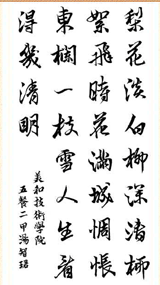 梨花淡白柳深清柳
絮飛時花滿城惆悵
東欄一枝雪人生看
得幾清明
美和技術學院
五餐二甲湯智